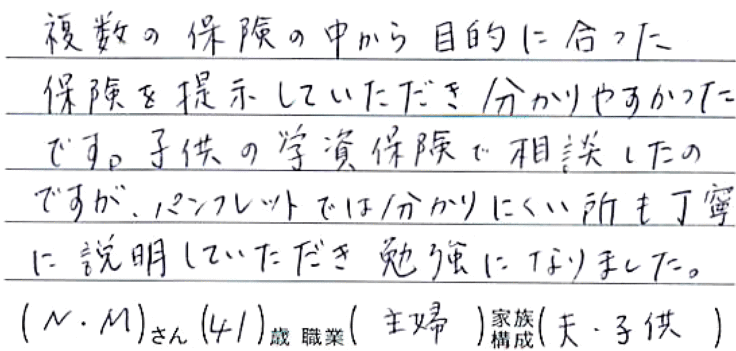 複数の保険の中から目的に合った
保険を提示していただき分かりやすかった
です。子供の学資保険で相談したの
ですが、パンフレットでは分かりにくい所も丁寧
に説明していただき勉強になりました。
(N・M)さん(41)歳 職業(主婦)家族構成(夫・子供)